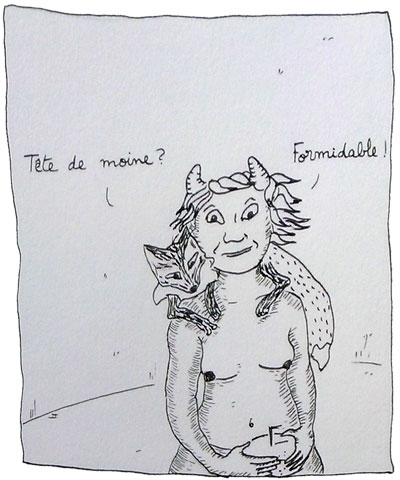 Tête de moine ?
Formidable !